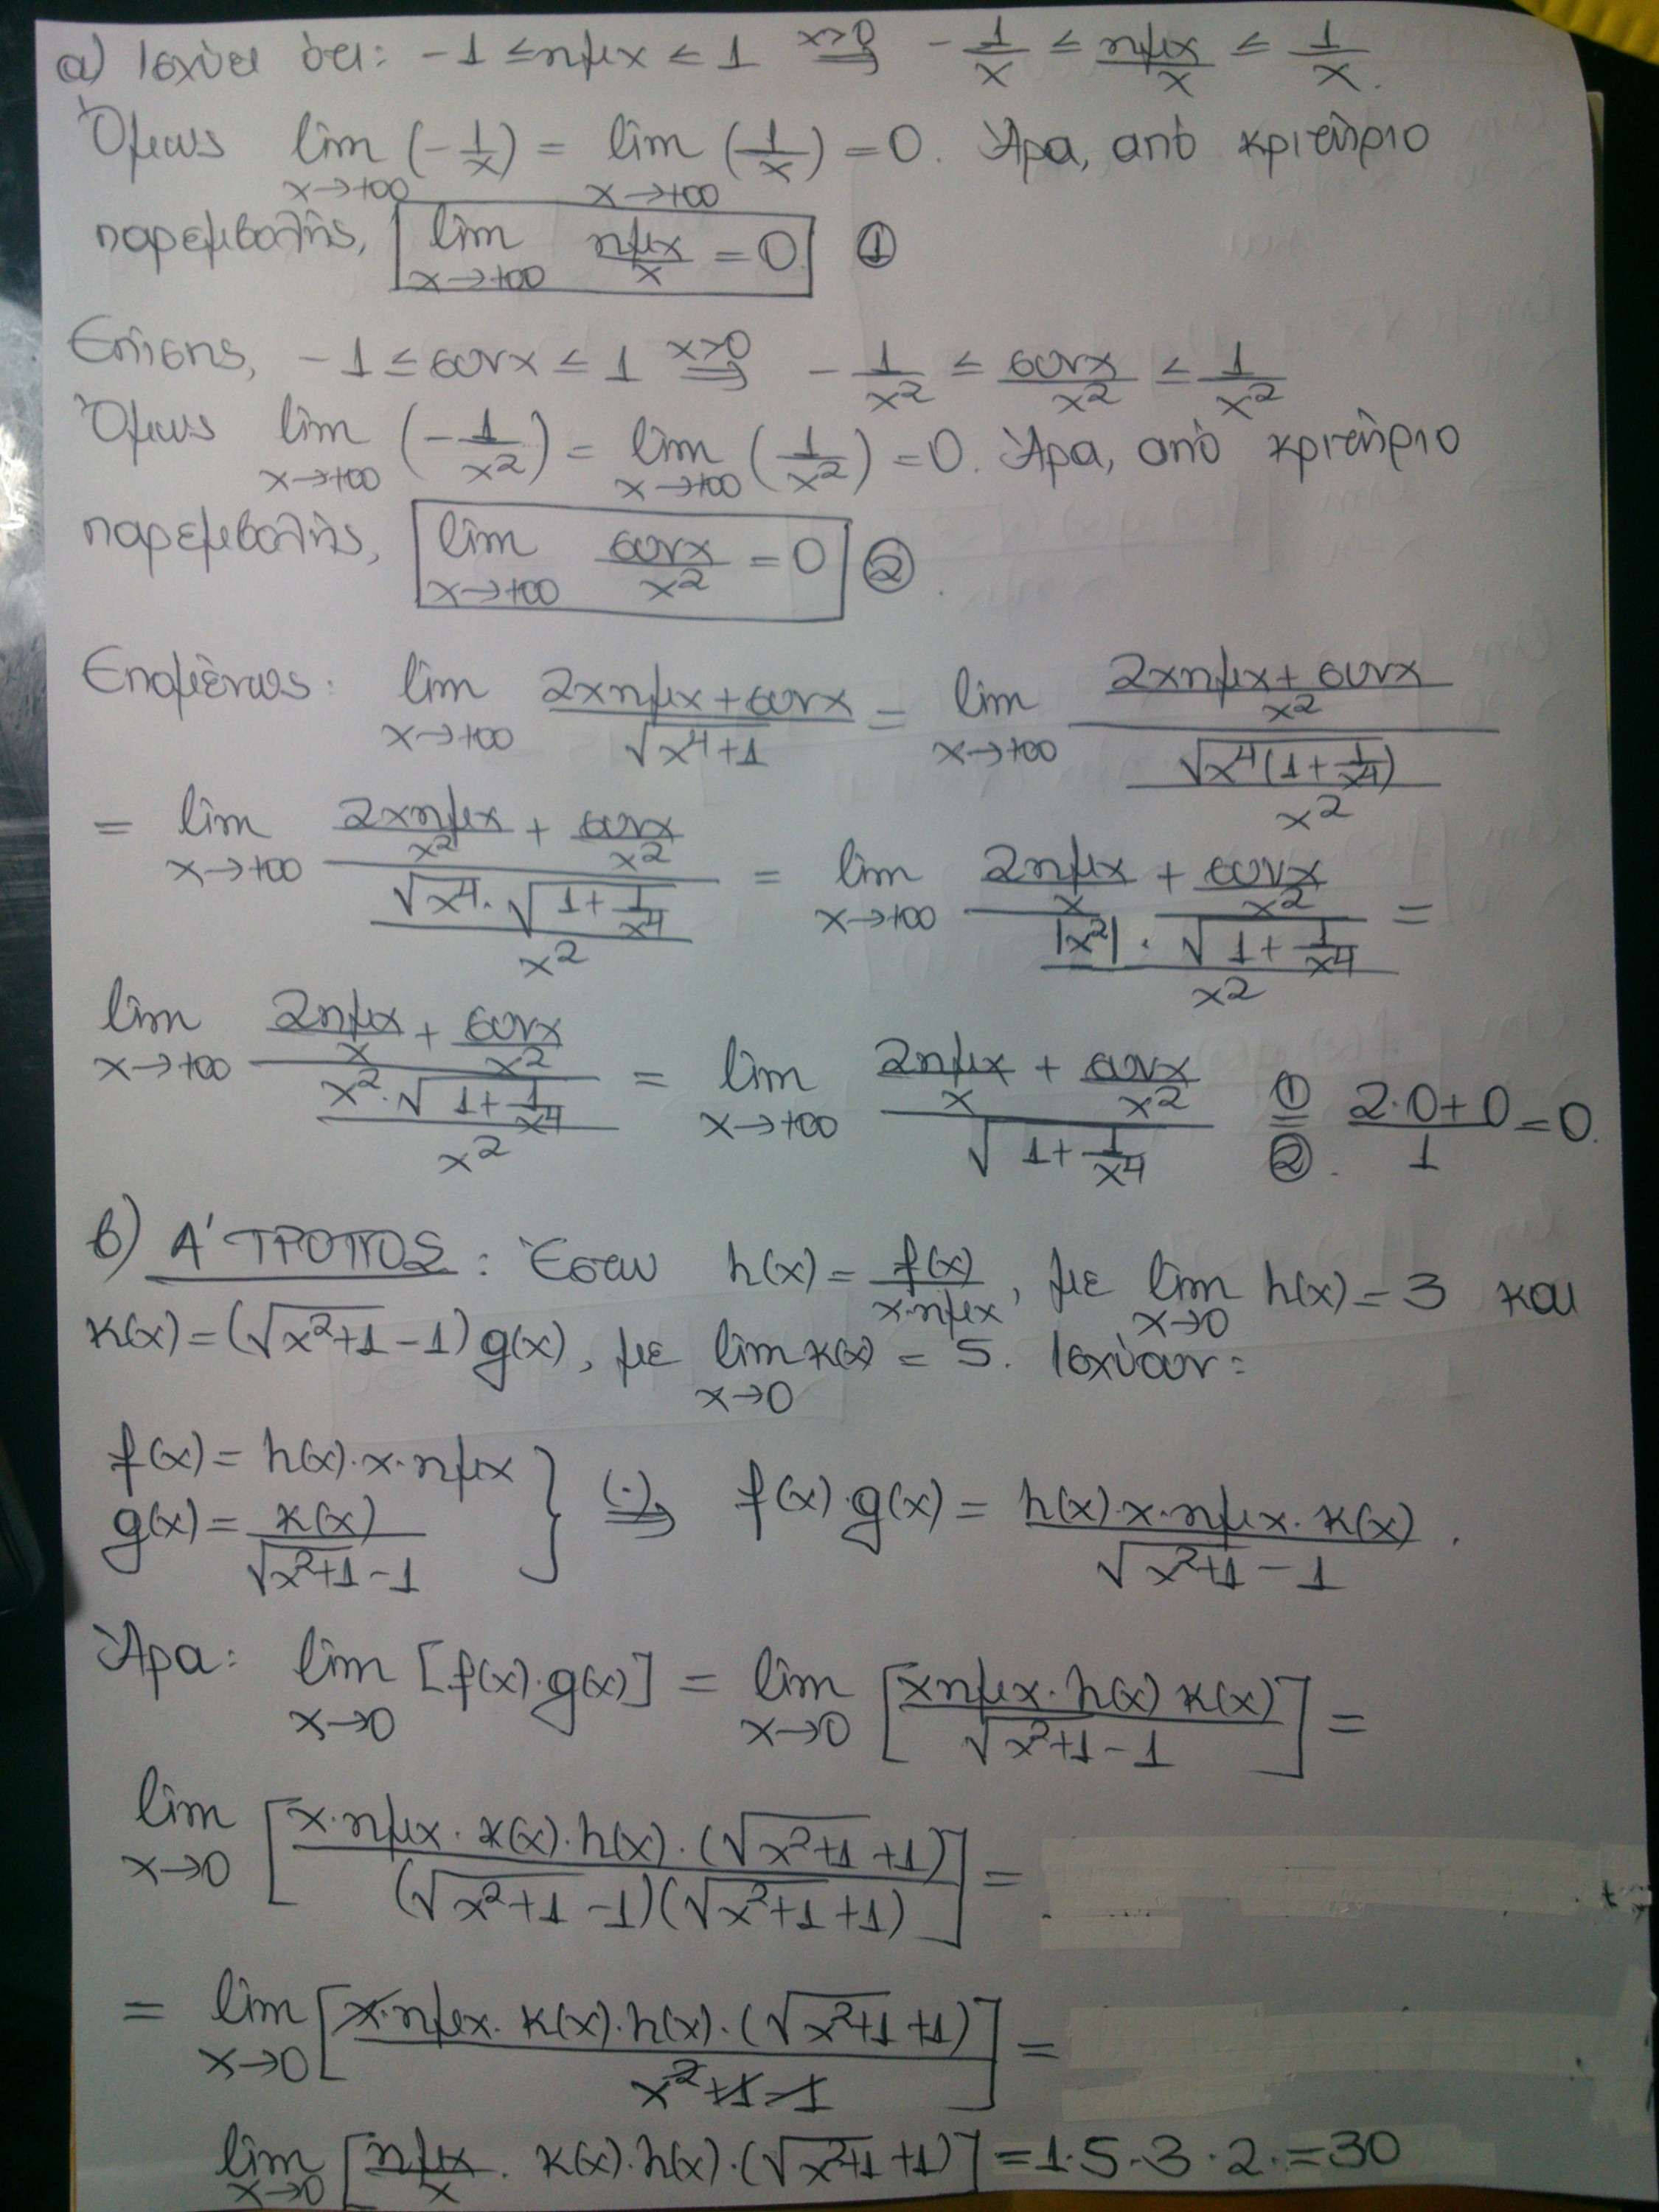 α) Ισχύει ότι: -1 ≤ ημx ≤ 1 x>0 ⇒ -1/x ≤ ημx/x ≤ 1/x.
Όμως lim x→+∞ (-1/x) = lim x→+∞ (1/x) = 0. Άρα, από κριτήριο
παρεμβολής, lim x→+∞ ημx/x = 0 ①
Επίσης, -1 ≤ συνx ≤ 1 x>0 ⇒ -1/x² ≤ συνx/x² ≤ 1/x²
Όμως lim x→+∞ (-1/x²) = lim x→+∞ (1/x²) = 0. Άρα, από κριτήριο
παρεμβολής, lim x→+∞ συνx/x² = 0 ②.
Επομένως: lim x→+∞ (2xημx + συνx)/√(x⁴+1) = lim x→+∞ ((2xημx + συνx)/x²)/(√(x⁴(1+1/x⁴))/x²)
= lim x→+∞ (2xημx/x² + συνx/x²)/(√x⁴·√(1+1/x⁴)/x²) = lim x→+∞ (2ημx/x + συνx/x²)/(|x²|·√(1+1/x⁴)/x²) =
lim x→+∞ (2ημx/x + συνx/x²)/(x²·√(1+1/x⁴)/x²) = lim x→+∞ (2ημx/x + συνx/x²)/√(1+1/x⁴) ① = ② (2·0+0)/1 = 0.
β) Α' ΤΡΟΠΟΣ: Έστω h(x) = f(x)/(x·ημx), με lim x→0 h(x) = 3 και
κ(x) = (√(x²+1) - 1)g(x), με lim x→0 κ(x) = 5. Ισχύουν:
f(x) = h(x)·x·ημx
g(x) = κ(x)/(√(x²+1) - 1) } (·) ⇒ f(x)·g(x) = h(x)·x·ημx·κ(x)/(√(x²+1) - 1).
Άρα: lim x→0 [f(x)·g(x)] = lim x→0 [xημx·h(x)κ(x)/(√(x²+1) - 1)] =
lim x→0 [x·ημx·κ(x)·h(x)·(√(x²+1) + 1)/((√(x²+1) - 1)(√(x²+1) + 1))] =
= lim x→0 [x·ημx·κ(x)·h(x)·(√(x²+1) + 1)/(x²+1-1)] =
lim x→0 [ημx/x · κ(x)·h(x)·(√(x²+1) + 1)] = 1·5·3·2·=30